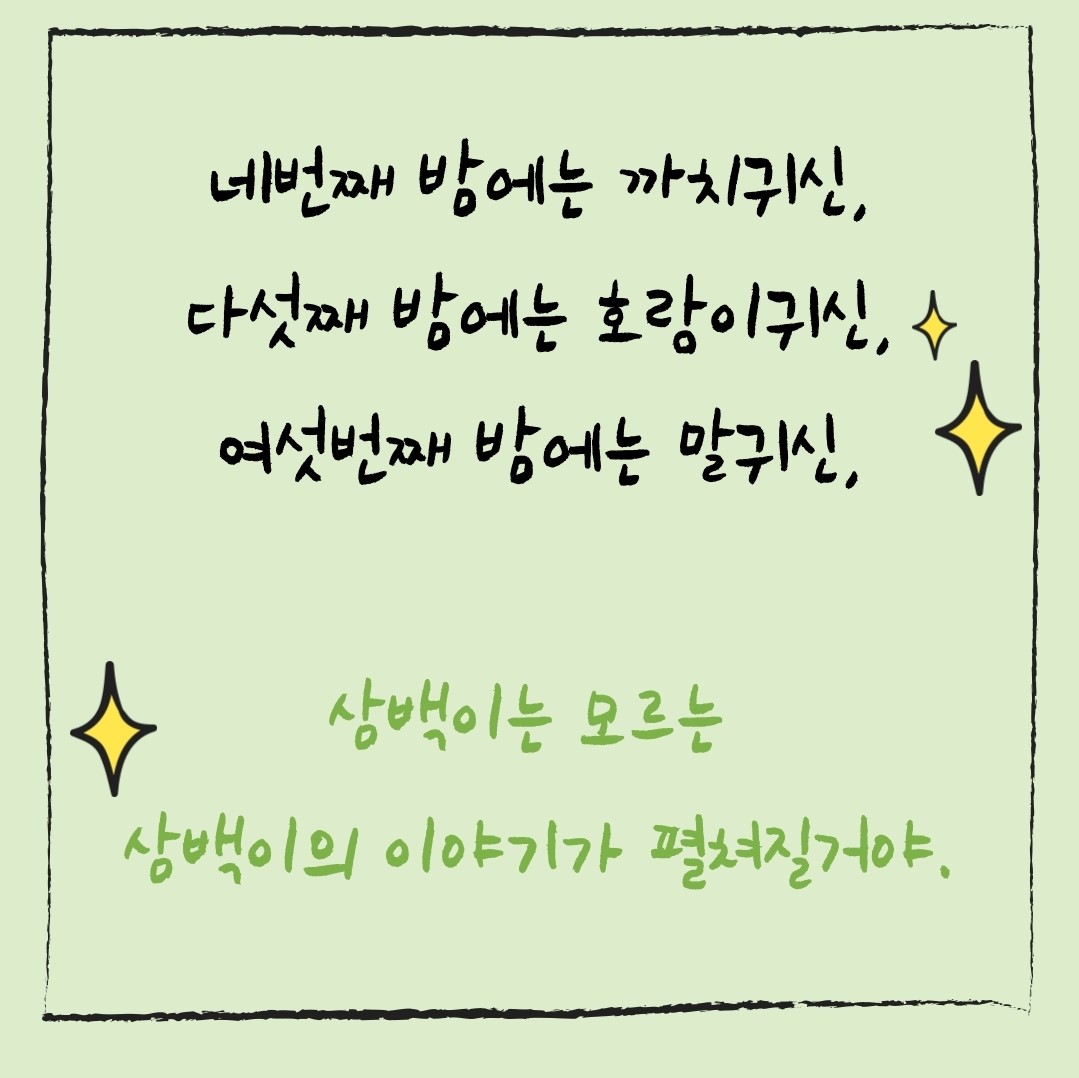 네번째 밤에는 까치귀신,
다섯째 밤에는 호랑이귀신,
여섯번째 밤에는 말귀신,
삼백이는 모르는
삼백이의 이야기가 펼쳐질거야.